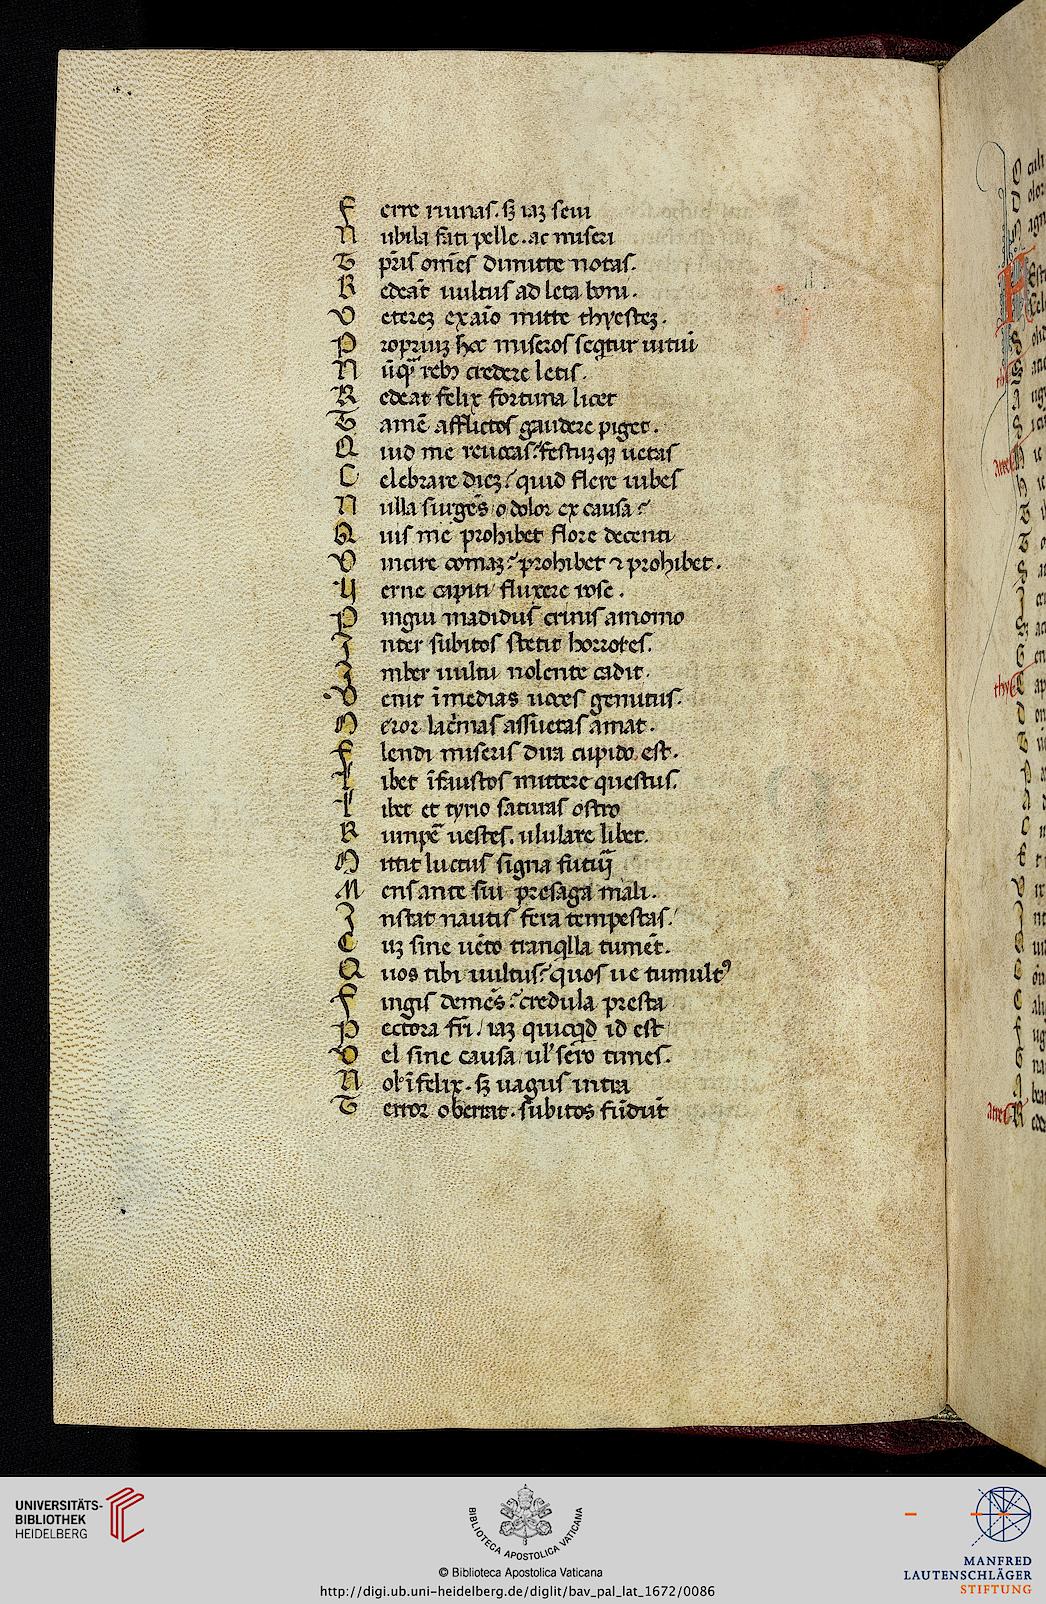 F erre ruinas. sꝫ iaꝫ seui
N ubila fati pelle. ac miseri
T p̃ris om̃es dimitte notas.
R edeãt uultus ad leta boni.
V etereꝫ ex aĩo mitte thyesteꝫ.
P ropriuꝫ hoc miseros seq̃tur uitiũ
N ũq̃ rebꝫ credere letis.
R edeat felix fortuna licet
T amẽ afflictos gaudere piget.
Q uid me reuocas? festuꝫqꝫ uetas
C elebrare dieꝫ? quid flere iubes
N ulla surgẽs o dolor ex causa?
Q uis me prohibet flore decenti
V incire comaꝫ? prohibet ⁊ prohibet.
V erne capiti fluxere rose.
P ingui madidus crinis amomo
I nter subitos stetit horrores.
I mber uultu nolente cadit.
V enit ĩ medias uoces gemitus.
M eror lac̃mas assuetas amat.
F lendi miseris dira cupido est.
L ibet ĩfaustos mittere questus.
L ibet et tyrio saturas ostro
R umpẽ uestes. ululare libet.
M ittit luctus signa futuri
M ens ante sui presaga mali.
I nstat nautis fera tempestas.
C uꝫ sine uẽto tranq̃lla tumẽt.
Q uos tibi uultus? quos ue tumultꝰ
F ingis demẽs? credula presta
P ectora frĩ. iaꝫ quicq̃d id est
V el sine causa ul' sero times.
N ol' ĩfelix. sꝫ uagus intra
T error oberrat. subitos fũdũt
UNIVERSITÄTS-
BIBLIOTHEK
HEIDELBERG
BIBLIOTECA APOSTOLICA VATICANA
© Biblioteca Apostolica Vaticana
http://digi.ub.uni-heidelberg.de/diglit/bav_pal_lat_1672/0086
MANFRED
LAUTENSCHLÄGER
STIFTUNG